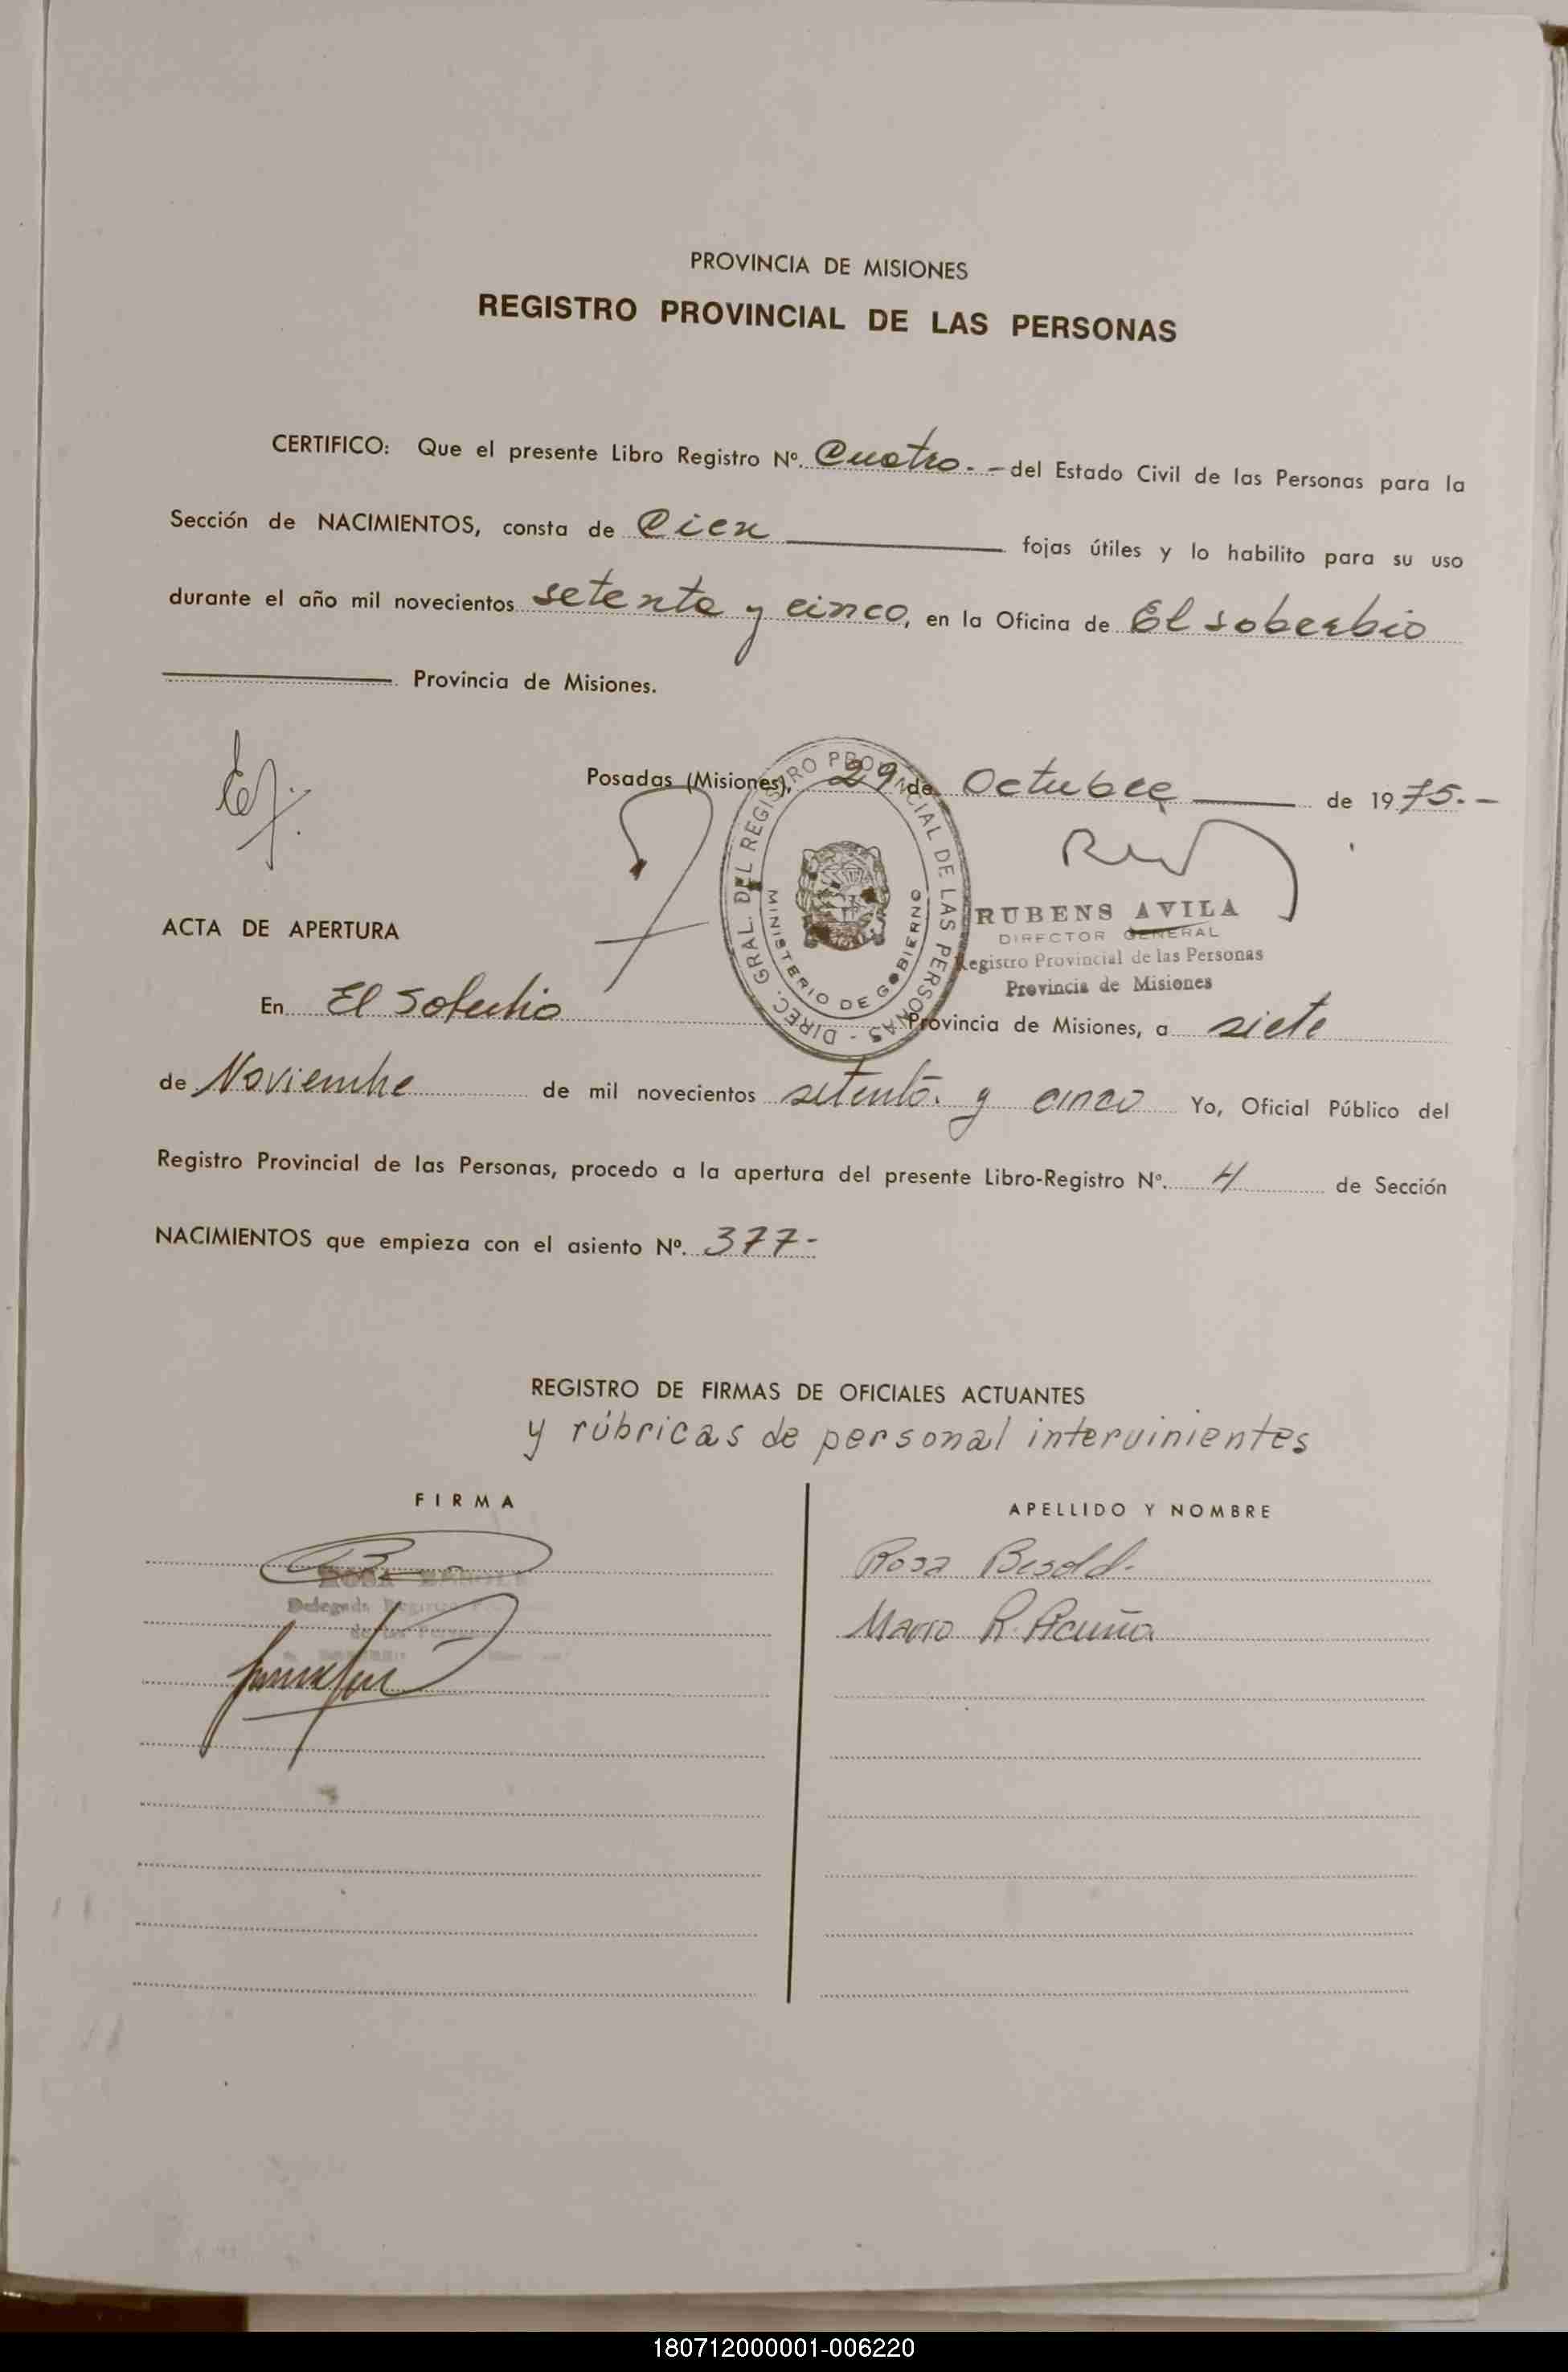 PROVINCIA DE MISIONES
REGISTRO PROVINCIAL DE LAS PERSONAS
CERTIFICO: Que el presente Libro Registro Nº. Cuatro. - del Estado Civil de las Personas para la
Sección de NACIMIENTOS, consta de Cien fojas útiles y lo habilito para su uso
durante el año mil novecientos setenta y cinco, en la Oficina de El soberbio
Provincia de Misiones.
Posadas (Misiones), 29 de Octubre de 1975.-
DIREC. GRAL. DEL REGISTRO PROVINCIAL DE LAS PERSONAS -
MINISTERIO DE GOBIERNO
RUBENS AVILA
DIRECTOR GENERAL
Registro Provincial de las Personas
Provincia de Misiones
ACTA DE APERTURA
En El Soberbio Provincia de Misiones, a siete
de Noviembre de mil novecientos setenta y cinco Yo, Oficial Público del
Registro Provincial de las Personas, procedo a la apertura del presente Libro-Registro Nº. 4 de Sección
NACIMIENTOS que empieza con el asiento Nº. 377-
REGISTRO DE FIRMAS DE OFICIALES ACTUANTES
y rúbricas de personal intervinientes
FIRMA
APELLIDO Y NOMBRE
Rosa Besold.
Mario R. Acuña
ROSA
Delegada
180712000001-006220